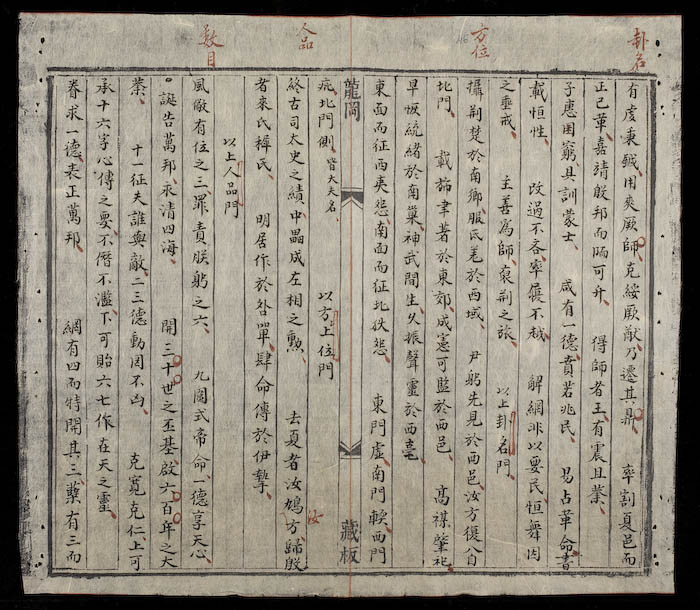 卦名
有虔秉鉞用爽厥師克綏厥猷乃遷其鼎　率割夏邑而
正己革嘉靖殷邦而陑可升　得師者王有震且業
子惠困窮具訓蒙士　咸有一德賁若兆民　易占革命書
載恒性　改過不吝率履不越　解網非以要民恒舞因
之垂戒　主善為師裒荊之旅　以上卦名門
方位
攝荊楚於南鄉服氐羌於西域　尹躬先見於西邑汝方復入自
北門　載旆聿著於東郊成憲可監於西邑　高禖肇祀
早恢統緒於南巢神武間生久振聲靈於西亳
東面而征西夷怨南面而征北狄怨　東門虛南門輭西門
龍岡　藏板
疵北門側　皆大夫名　以方上位門
人品
終古司太史之績中成左相之勲　去夏者汝鳩方歸殷
汝
者來氏氏　明居作於咎單肆命傳於伊摯
以上人品門
數目
風敵有位之三罪責朕躬之六　九圍式帝命一德享天心
誕告萬邦永清四海　開三十世之丕基啟六百年之大
業　十一征夫誰與敵二三德動罔不凶　克寬克仁上可
承十六字心傳之要不僭不濫下可貽六七作在天之靈
眷求一德表正萬邦　網有四而特開其三蘖有三而